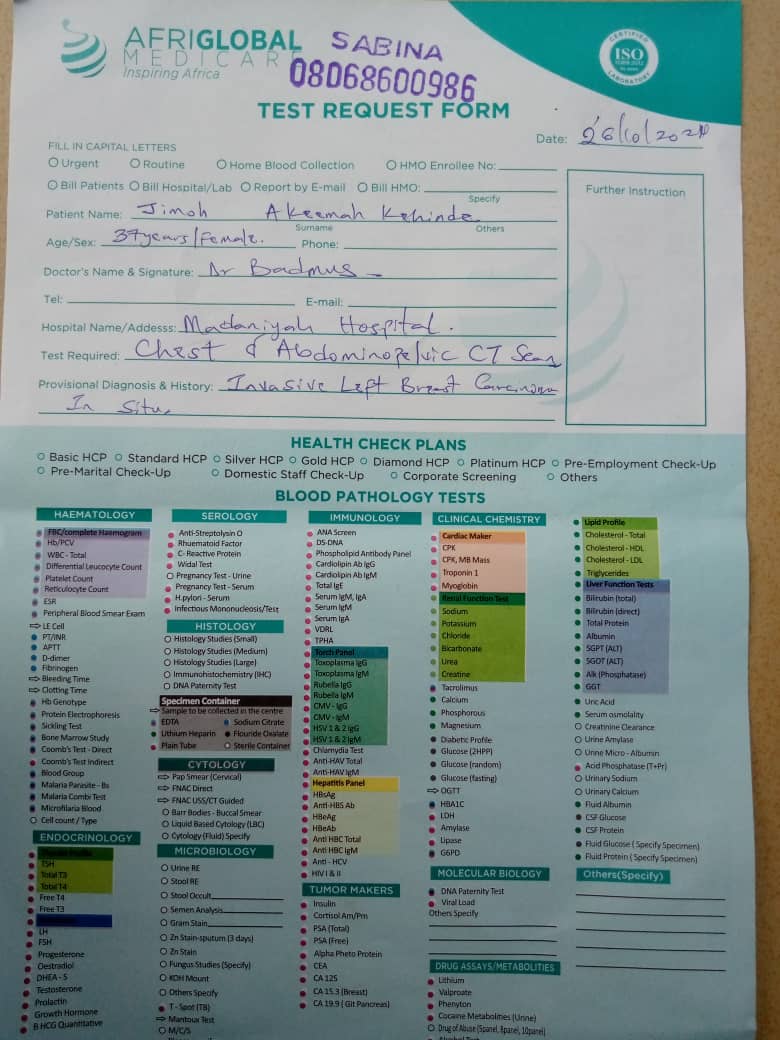 AFRIGLOBAL
MEDICARE
Inspiring Africa
SABINA
08068600986
CERTIFIED
ISO
LABORATORY
TEST REQUEST FORM
Date: 26/10/2021
FILL IN CAPITAL LETTERS
Urgent Routine Home Blood Collection HMO Enrollee No:
Bill Patients Bill Hospital/Lab Report by E-mail Bill HMO:
Specify
Further Instruction
Patient Name: Jimoh Akeemah Kehinde
Surname Others
Age/Sex: 37years/Female. Phone:
Doctor's Name & Signature: Dr Badmus
Tel: E-mail:
Hospital Name/Addesss: Madaniyah Hospital.
Test Required: Chest & Abdominopelvic CT Scan
Provisional Diagnosis & History: Invasive Left Breast Carcinoma
In Situ.
HEALTH CHECK PLANS
Basic HCP Standard HCP Silver HCP Gold HCP Diamond HCP Platinum HCP Pre-Employment Check-Up
Pre-Marital Check-Up Domestic Staff Check-Up Corporate Screening Others
BLOOD PATHOLOGY TESTS
HAEMATOLOGY
FBC/complete Haemogram
Hb/PCV
WBC - Total
Differential Leucocyte Count
Platelet Count
Reticulocyte Count
ESR
Peripheral Blood Smear Exam
LE Cell
PT/INR
APTT
D-dimer
Fibrinogen
Bleeding Time
Clotting Time
Hb Genotype
Protein Electrophoresis
Sickling Test
Bone Marrow Study
Coomb's Test - Direct
Coomb's Test Indirect
Blood Group
Malaria Parasite - Bs
Malaria Combi Test
Microfilaria Blood
Cell count / Type
ENDOCRINOLOGY
TSH
Total T3
Total T4
Free T4
Free T3
LH
FSH
Progesterone
Oestradiol
DHEA - S
Testosterone
Prolactin
Growth Hormone
B HCG Quantitative
SEROLOGY
Anti-Streptolysin O
Rhuematoid Factor
C- Reactive Protein
Widal Test
Pregnancy Test - Urine
Pregnancy Test - Serum
H.pylori - Serum
Infectious Mononucleosis/Test
HISTOLOGY
Histology Studies (Small)
Histology Studies (Medium)
Histology Studies (Large)
Immunohistochemistry (IHC)
DNA Paternity Test
Specimen Container
Sample to be collected in the centre
EDTA Sodium Citrate
Lithium Heparin Flouride Oxalate
Plain Tube Sterile Container
CYTOLOGY
Pap Smear (Cervical)
FNAC Direct
FNAC USS/CT Guided
Barr Bodies - Buccal Smear
Liquid Based Cytology (LBC)
Cytology (Fluid) Specify
MICROBIOLOGY
Urine RE
Stool RE
Stool Occult
Semen Analysis
Gram Stain
Zn Stain-sputum (3 days)
Zn Stain
Fungus Studies (Specify)
KOH Mount
Others Specify
T - Spot (TB)
Mantoux Test
M/C/S
IMMUNOLOGY
ANA Screen
DS DNA
Phospholipid Antibody Panel
Cardiolipin Ab IgG
Cardiolipin Ab IgM
Total IgE
Serum IgM, IgA
Serum IgM
Serum IgA
VDRL
TPHA
Torch Panel
Toxoplasma IgG
Toxoplasma IgM
Rubella IgG
Rubella IgM
CMV - IgG
CMV - IgM
HSV 1 & 2 IgG
HSV 1 & 2 IgM
Chlamydia Test
Anti-HAV Total
Anti-HAV IgM
Hepatitis Panel
HBsAg
Anti-HBS Ab
HBeAg
HBeAb
Anti HBC Total
Anti HBC IgM
Anti - HCV
HIV I & II
TUMOR MAKERS
Insulin
Cortisol Am/Pm
PSA (Total)
PSA (Free)
Alpha Pheto Protein
CEA
CA 125
CA 15.3 (Breast)
CA 19.9 ( Git Pancreas)
CLINICAL CHEMISTRY
Cardiac Maker
CPK
CPK, MB Mass
Troponin 1
Myoglobin
Renal Function Test
Sodium
Potassium
Chloride
Bicarbonate
Urea
Creatine
Tacrolimus
Calcium
Phosphorous
Magnesium
Diabetic Profile
Glucose (2HPP)
Glucose (random)
Glucose (fasting)
OGTT
HBA1C
LDH
Amylase
Lipase
G6PD
MOLECULAR BIOLOGY
DNA Paternity Test
Viral Load
Others Specify
DRUG ASSAYS/METABOLITIES
Lithium
Valproate
Phenyton
Cocaine Metabolities (Urine)
Drug of Abuse (5panel, 8panel, 10panel)
Lipid Profile
Cholesterol - Total
Cholesterol - HDL
Cholesterol - LDL
Triglycerides
Liver Function Tests
Bilirubin (total)
Bilirubin (direct)
Total Protein
Albumin
SGPT (ALT)
SGOT (ALT)
Alk (Phosphatase)
GGT
Uric Acid
Serum osmolality
Creatinine Clearance
Urine Amylase
Unne Micro - Albumin
Acid Phosphatase (T+Pr)
Urinary Sodium
Urinary Calcium
Fluid Albumin
CSF Glucose
CSF Protein
Fluid Glucose ( Specify Specimen)
Fluid Protein ( Specify Specimen)
Others(Specify)